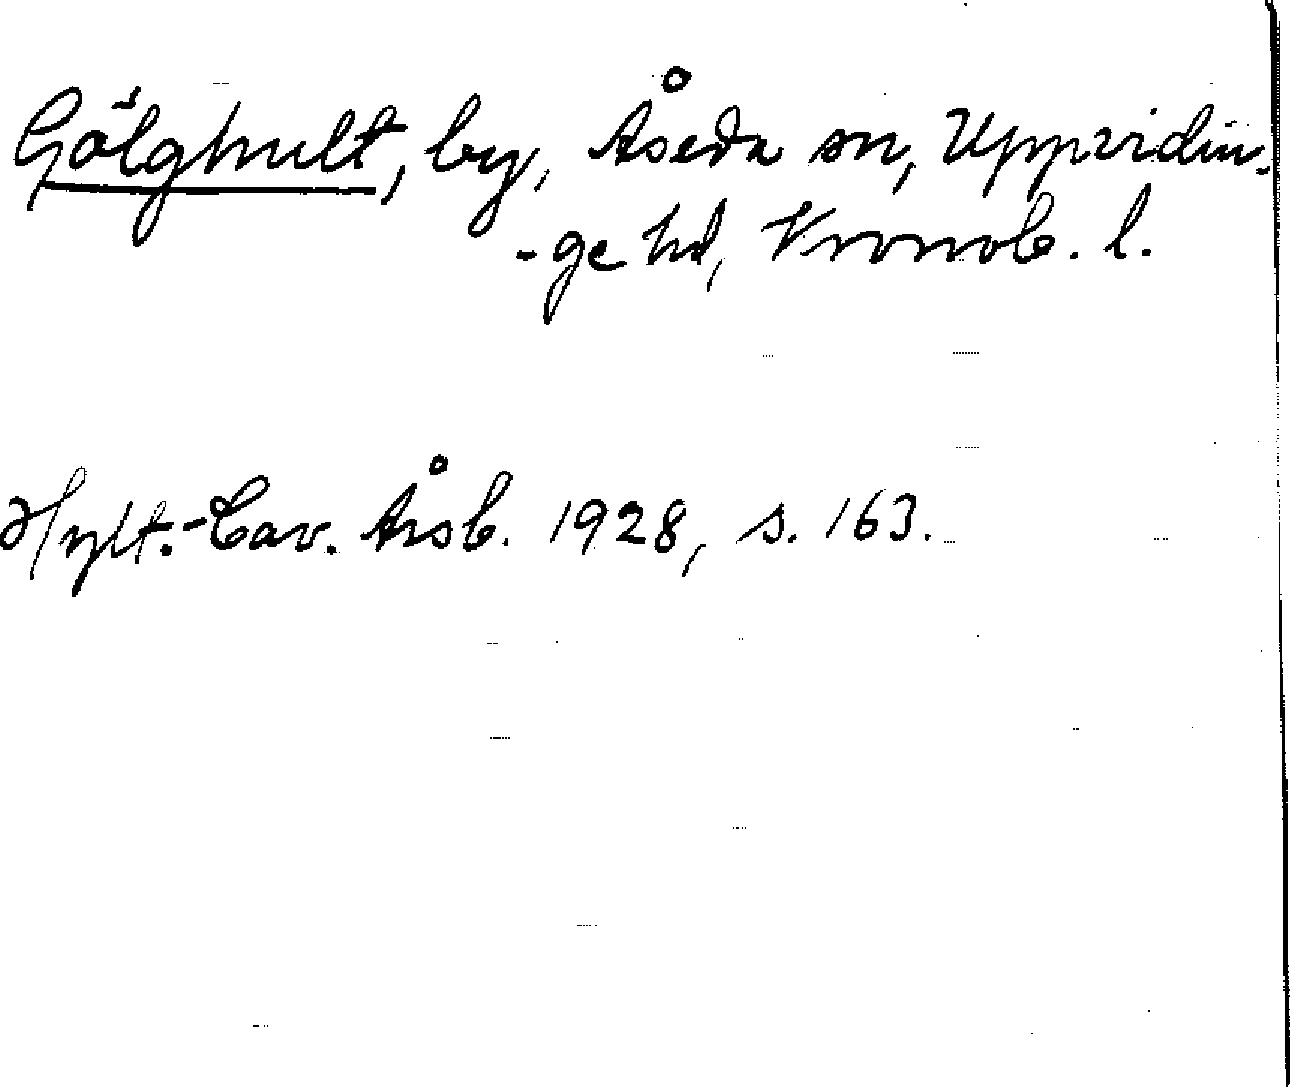 Gölghult, by, Åseda sn, Uppvidin-
-ge hd, Kronob. l.
Hylt.-Cav. Årsb. 1928, s. 163.